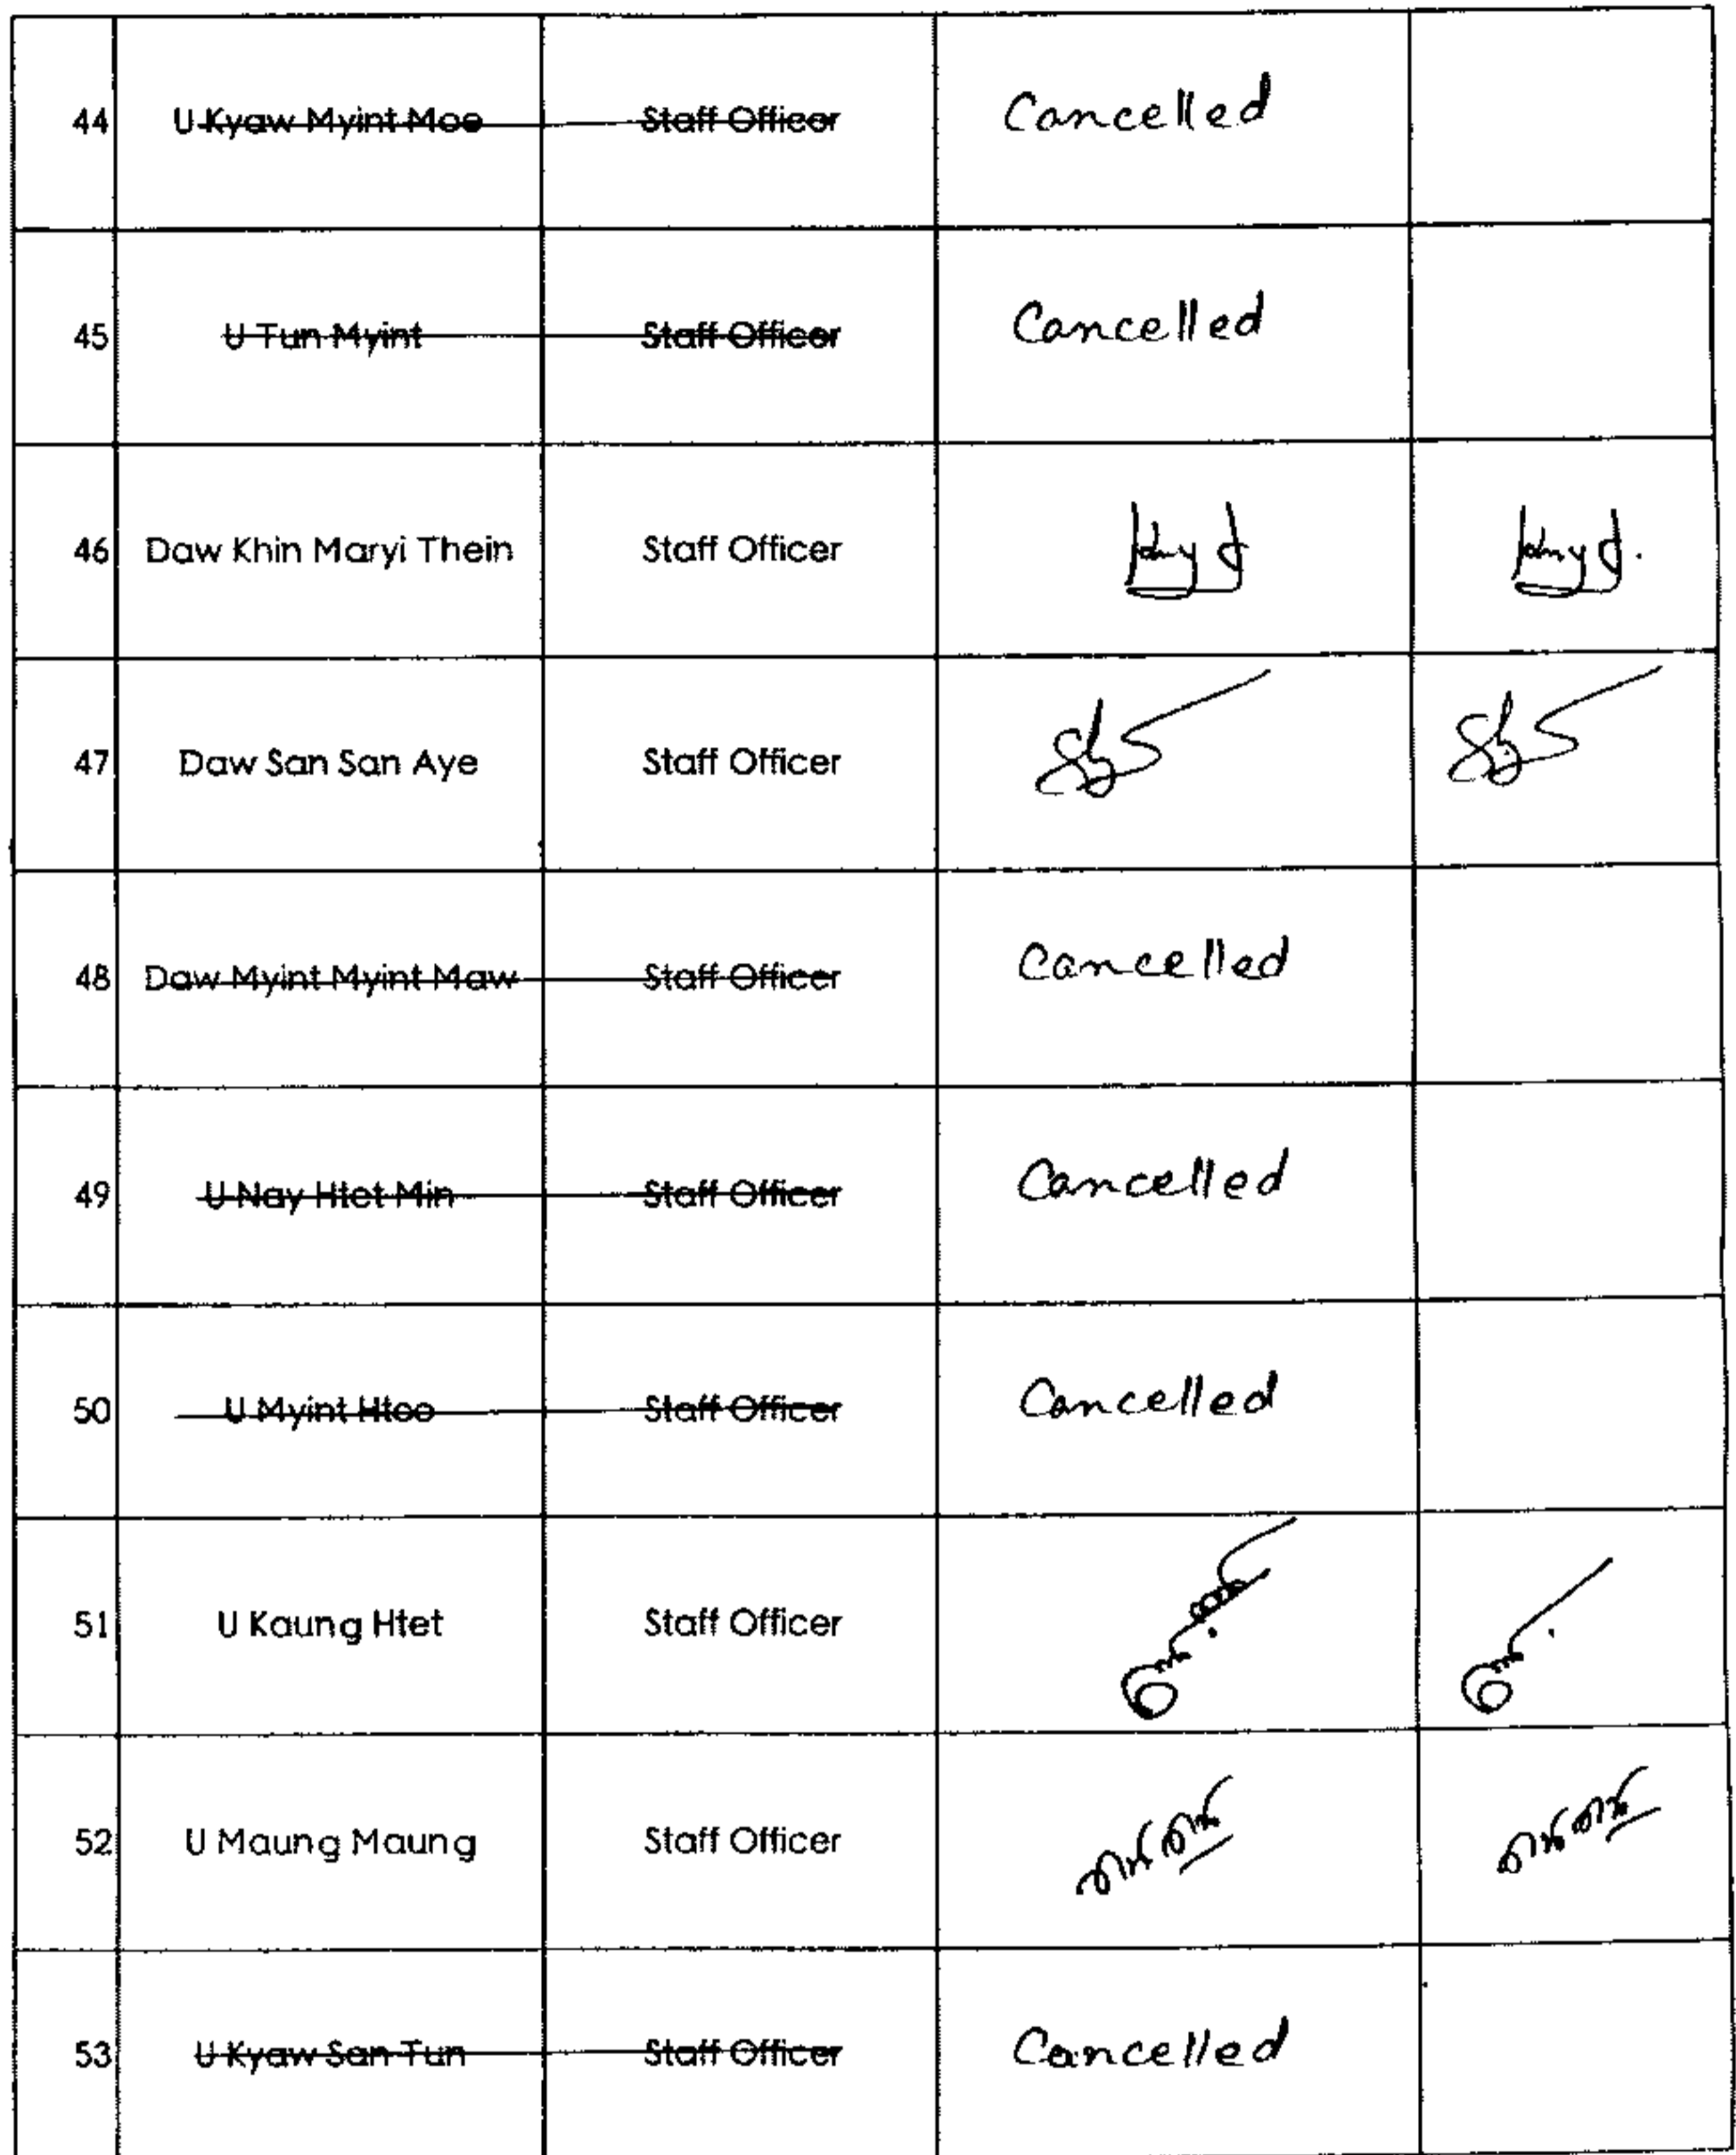 44 U Kyaw Myint Moe Staff Officer Cancelled
45 U Tun Myint Staff Officer Cancelled
46 Daw Khin Maryi Thein Staff Officer
47 Daw San San Aye Staff Officer
48 Daw Myint Myint Maw Staff Officer Cancelled
49 U Nay Htet Min Staff Officer Cancelled
50 U Myint Htoo Staff Officer Cancelled
51 U Kaung Htet Staff Officer
52 U Maung Maung Staff Officer
53 U Kyaw San Tun Staff Officer Cancelled